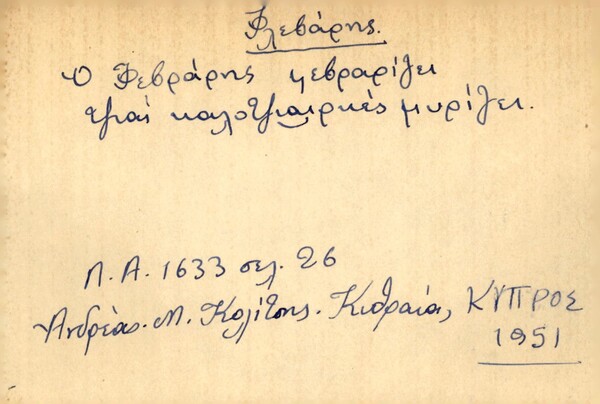 Φλεβάρης.
Ὁ Φεβράρης φεβραρίζει
τζιαί καλοτζιαιρκές μυρίζει.
Λ.Α. 1633 σελ. 26
Ἀνδρέας. Μ. Κολίτσης. Κυθραία, ΚΥΠΡΟΣ
1951